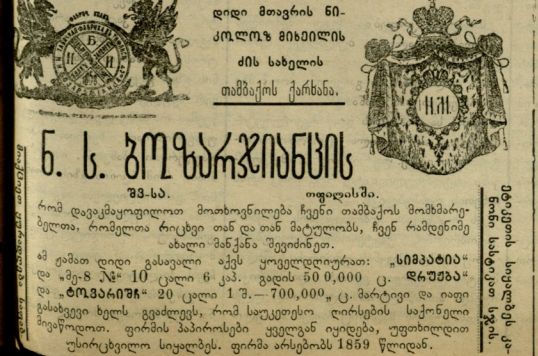 დიდი მთავრის ნი-
კოლოზ მიხეილის
ძის სახელის
თამბაქოს ქარხანა.
Н.М.
ნ. ს. ბოზარჯიანცის
შვ-სა. თფილისში.
რომ დავაკმაყოფილოთ მოთხოვნილება ჩვენი თამბაქოს მომხმარე-
ბელთა, რომელთა რიცხვი თან და თან მატულობს, ჩვენ რამდენიმე
ახალი მანქანა შევიძინეთ.
ამ ჟამათ დიდი გასავალი აქვს ყოველდღიურათ: „სიმპატია“
და „მე-8 № 10 ცალი 6 კაპ. გადის 500,000 ც. დრუჟბა“
და „ტოვარიშჩ“ 20 ცალი 1 შ.—700,000„ ც. მარტივი და იაფი
გასახვევი ხელს გვაძლევს, რომ საუკეთესო ღირსების საქონელი
მივაწოდოთ. ფირმის პაპიროსები ყველგან იყიდება, უფთხილდით
უსირცხვილო სიყალბეს. ფირმა არსებობს 1859 წლიდან.
ეტიკეთის სიყალბეს კა-
ნონი სასტიკათ სჯის.